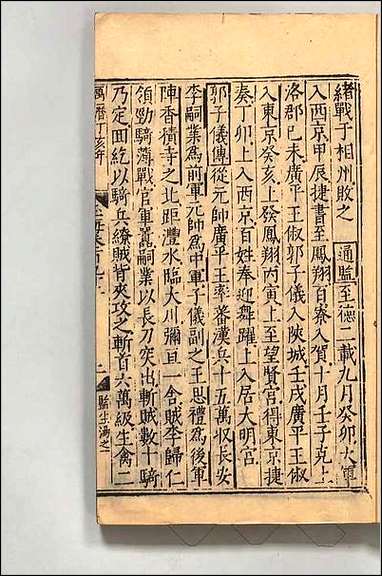 緒戰于相州敗之 通鑑至德二載九月癸卯大軍
入西京甲辰捷書至鳳翔百寮入賀十月壬子克上
洛郡己未廣平王俶郭子儀入陝城壬戌廣平王俶
入東京癸亥上發鳳翔丙寅上至望賢宮得東京捷
奏丁卯上入西京百姓奉迎舞躍上入居大明宮
郭子儀傳從元帥廣平王率蕃漢兵十五萬收長安
李嗣業為前軍元帥為中軍子儀副之王思禮為後軍
陣香積寺之北距灃水臨大川彌亘一舍賊李歸仁
領勁騎薄戰官軍囂嗣業以長刀突出斬賊數十騎
乃定回紇以騎兵繚賊背夾攻之斬首六萬級生禽二
萬曆丁亥年